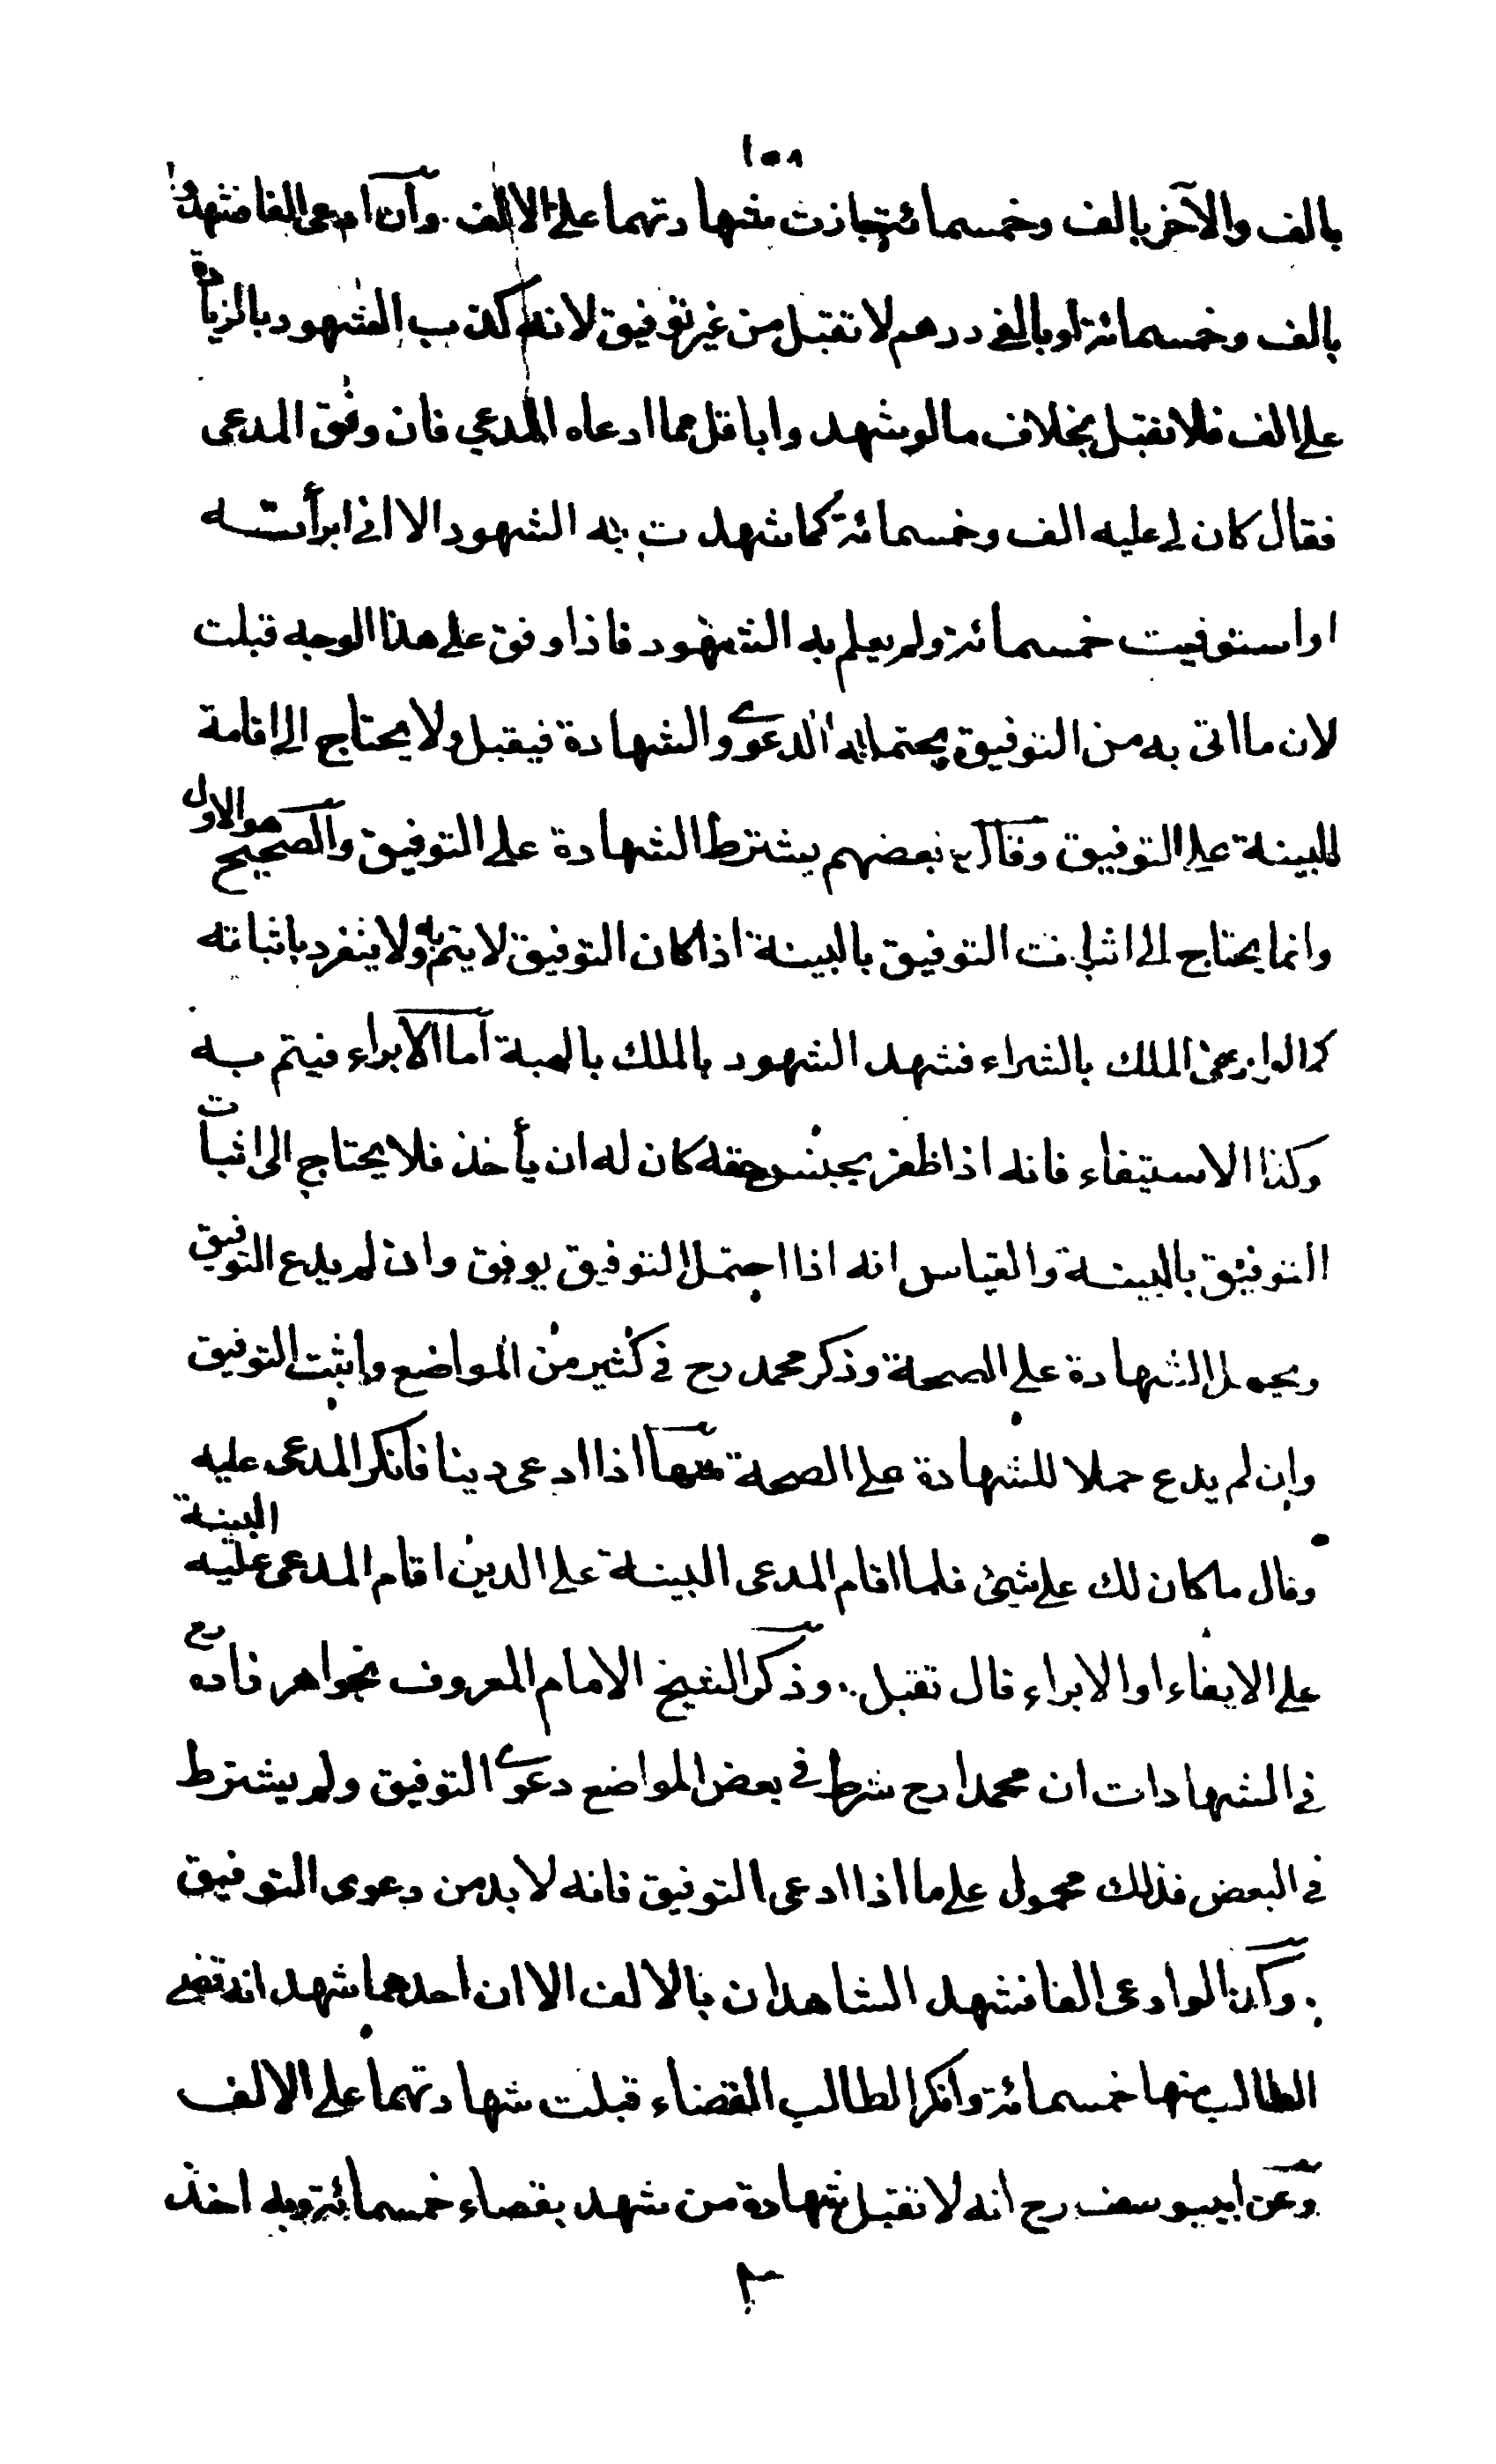 ١٥٨
بالف والآخر بالف وخمسمائة جازت شهادتهما على الالف وان ادعى الفا فشهدوا
بالف وخمسمائة او بالفي درهم لا تقبل من غير توفيق لانه كذب الشهود بالزيادة
على الف فلا تقبل بخلاف ما لو شهدوا باقل مما ادعاه المدعي فان وفق المدعى
فقال كان لي عليه الف وخمسمائة كما شهدت به الشهود الا اني ابرأته
او استوفيت خمسمائة ولم يعلم به الشهود فاذا وفق على هذا الوجه قبلت
لان ما اتى به من التوفيق يحتمله الدعوى والشهادة فيقبل ولا يحتاج الى اقامة
البينة على التوفيق وقال بعضهم يشترط الشهادة على التوفيق والصحيح هو الاول
وانما يحتاج الى اثبات التوفيق بالبينة اذا كان التوفيق لا يتم به ولا ينفرد باثباته
كما لو ادعى الملك بالشراء فشهد الشهود بالملك بالهبة اما الابراء فيتم به
وكذا الاستيفاء فانه اذا ظفر بجنس حقه كان له ان يأخذ فلا يحتاج الى اثبات
التوفيق بالبينة والقياس انه اذا احتمل التوفيق يوفق وان لم يدع التوفيق
ويحمل الشهادة على الصحة وذكر محمد رح في كثير من المواضع واثبت التوفيق
وان لم يدع حملا للشهادة على الصحة منها اذا ادعى دينا فانكر المدعى عليه
وقال ما كان لك على شئ فلما اقام المدعى البينة على الدين اقام المدعى عليه البينة
على الايفاء او الابراء قال تقبل وذكر الشيخ الامام المعروف بخواهر زاده رح
في الشهادات ان محمدا رح شرط في بعض المواضع دعوى التوفيق ولم يشترط
في البعض فذلك محمول على ما اذا ادعى التوفيق فانه لا بد من دعوى التوفيق
وكذا لو ادعى الفا فشهد الشاهدان بالالف الا ان احدهما شهد انه قضى
الطالب منها خمسمائة وانكر الطالب القضاء قبلت شهادتهما على الالف
وعن ابي يوسف رح انه لا تقبل شهادة من شهد بقضاء خمسمائة وبه اخذ